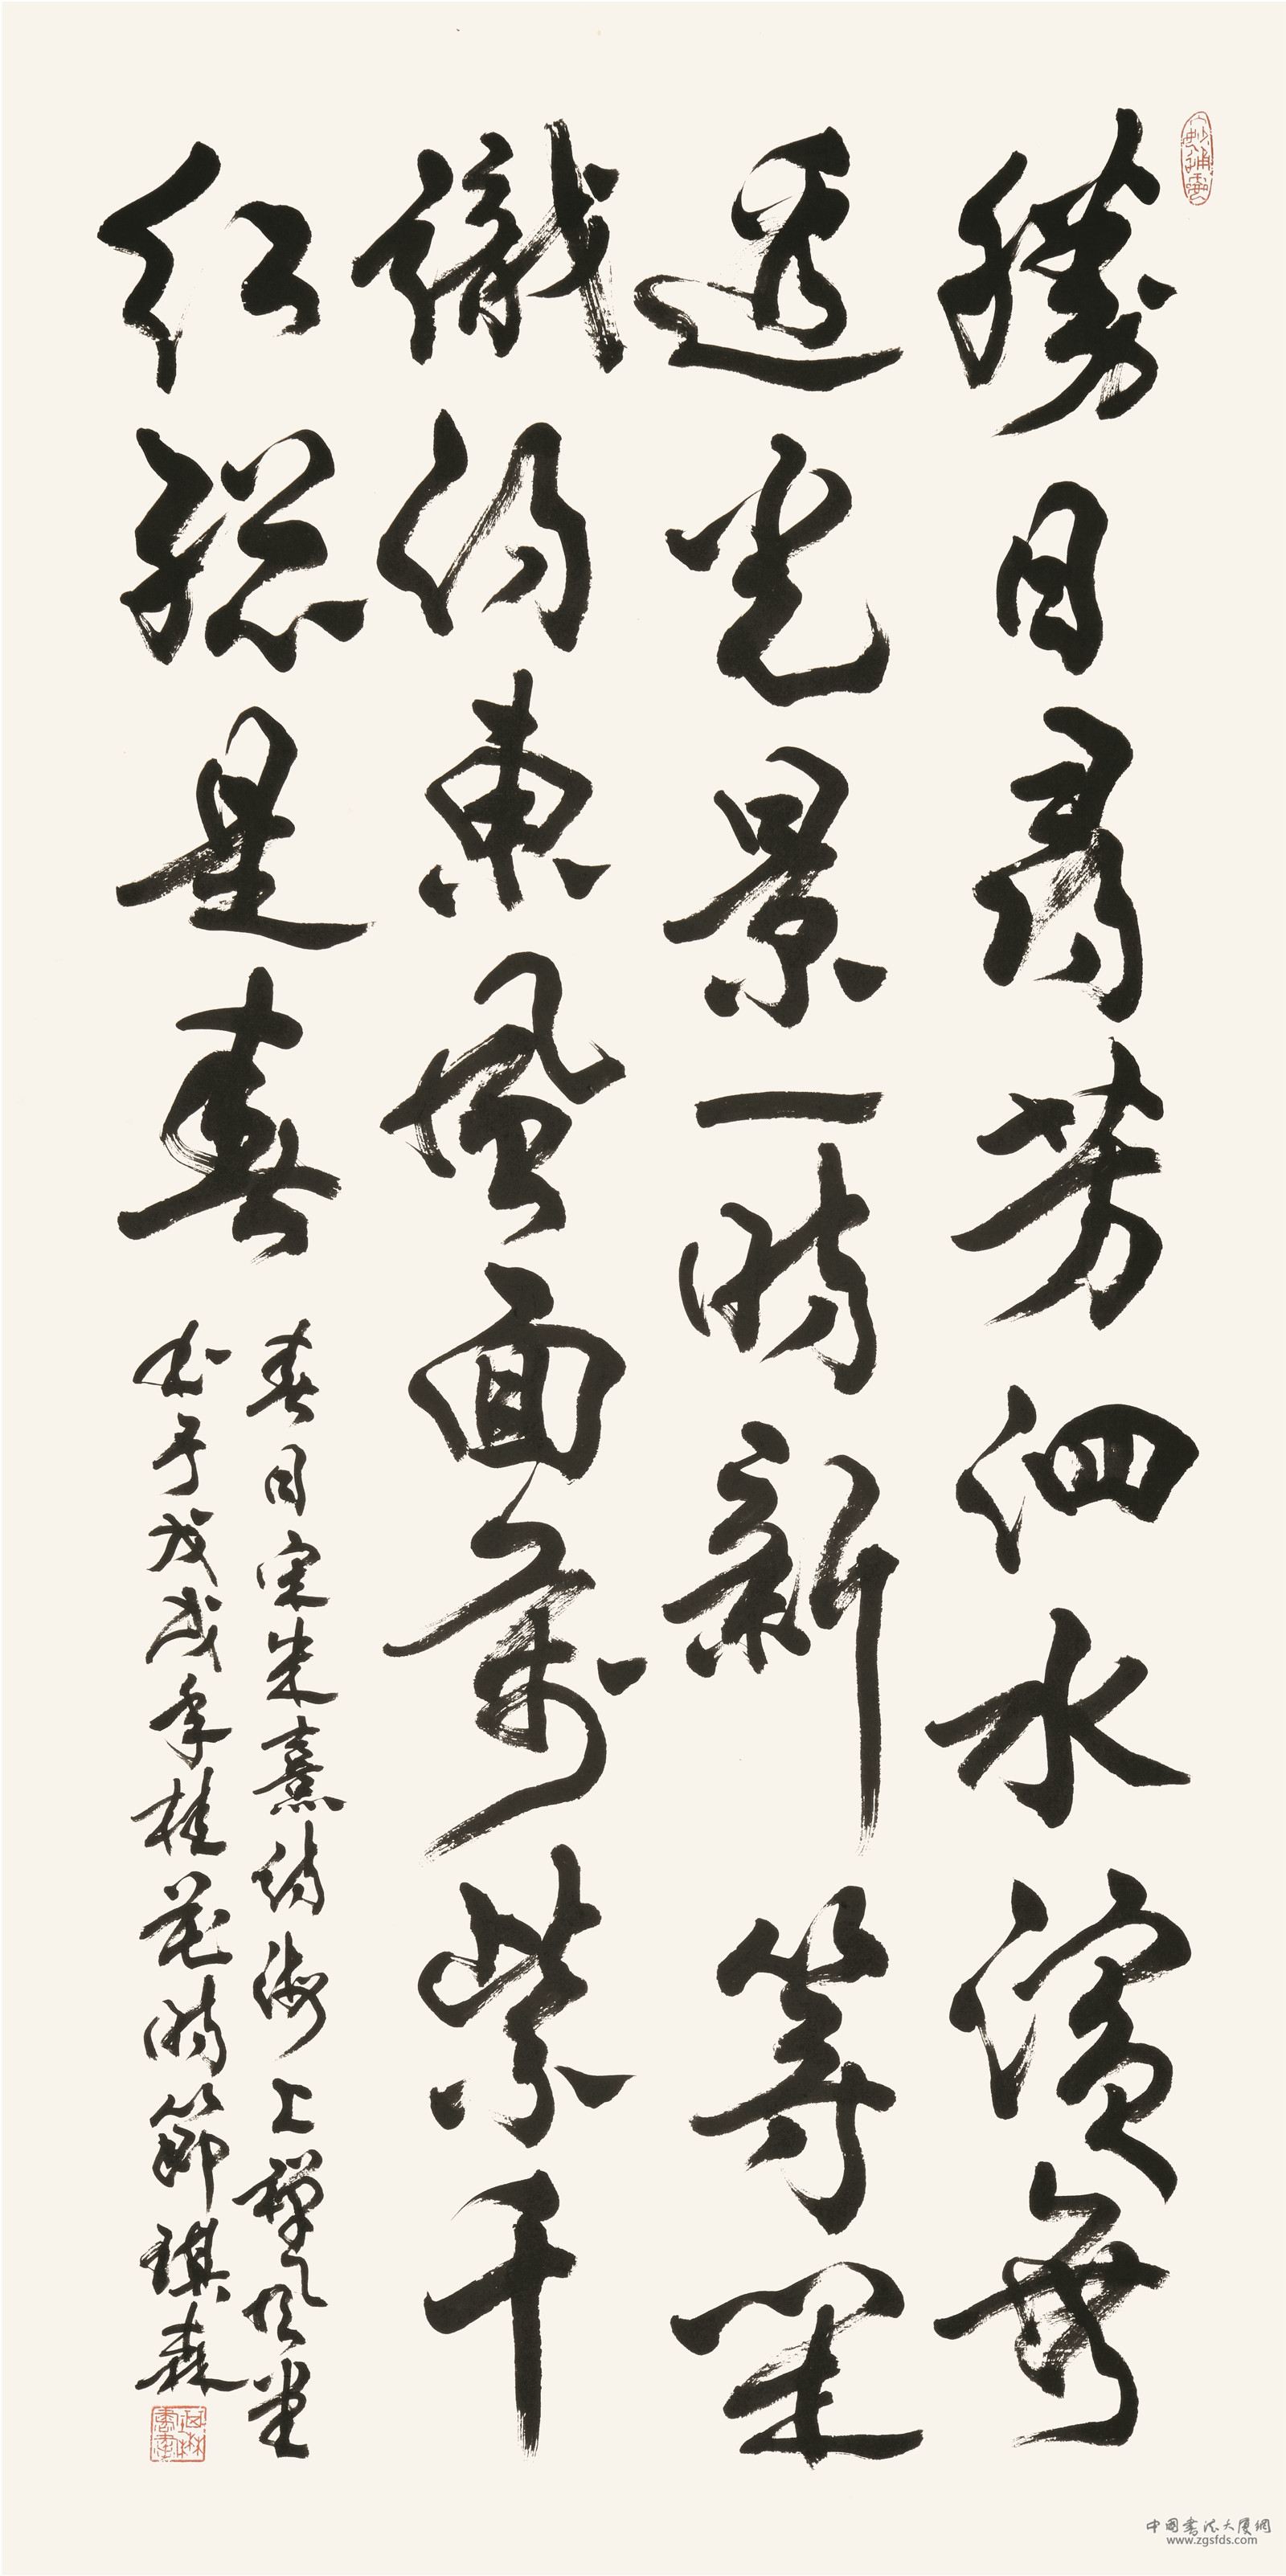 勝日尋芳泗水濱無
邊光景一時新等閑
識得東風面萬紫千
紅總是春
春日宋朱熹詩海上禪風堂
書于戊戌年桂花時節琪森
中國書法大厦網
www.zgsfds.com